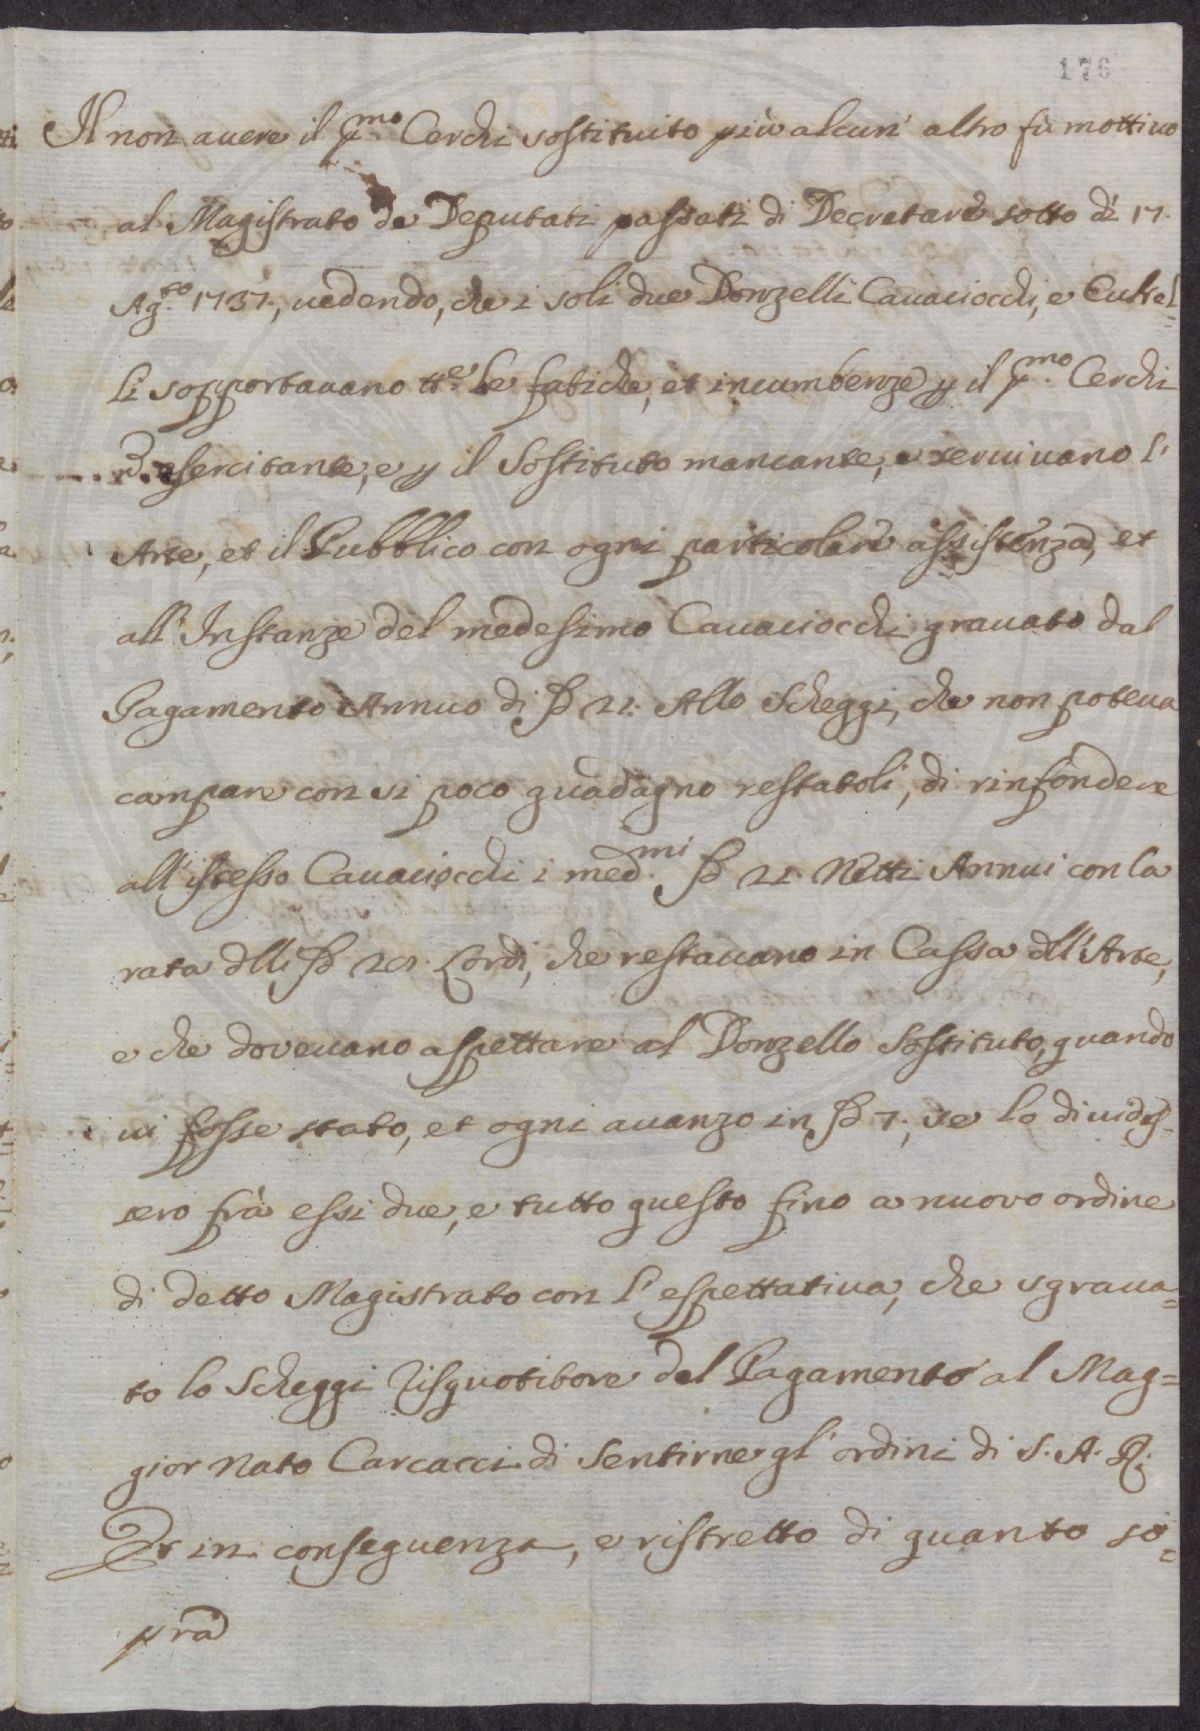 176
Il non avere il pmo Cerchi sostituito più alcun' altro fù mottivo
al Magistrato de Deputati passati di Decretare sotto dì 17.
Ag.to 1737., vedendo, che i soli due Donzelli Cavaciocchi, e Cutrel=
li sopportavano tte. le fatiche, et incumbenze p il pmo. Cerchi
esercitante, e p il Sostituto mancante, e servivano l'
Arte, et il Pubblico con ogni particolare assistenza, et
all' Instanze del medesimo Cavaciocchi gravato dal
Pagamento Annuo di 21. Allo Scheggi, che non poteva
campare con si poco guadagno restatoli, di rinfondere
all' istesso Cavaciocchi i med.mi 21. Netti Annui con la
rata dlli 28. Lordi, che restavano in Cassa dll' Arte,
e che dovevano aspettare al Donzello Sostituto, quando
vi fosse stato, et ogni avanzo in 7., se lo divides=
sero frà essi due, e tutto questo fino a nuovo ordine
di detto Magistrato con l' espettativa, che sgrava=
to lo Scheggi Risquotitore del Pagamento al Mag=
gior Nato Carcacci di Sentirne gl' ordini di S. A. R.
Et in conseguenza, e ristretto di quanto so=
pra